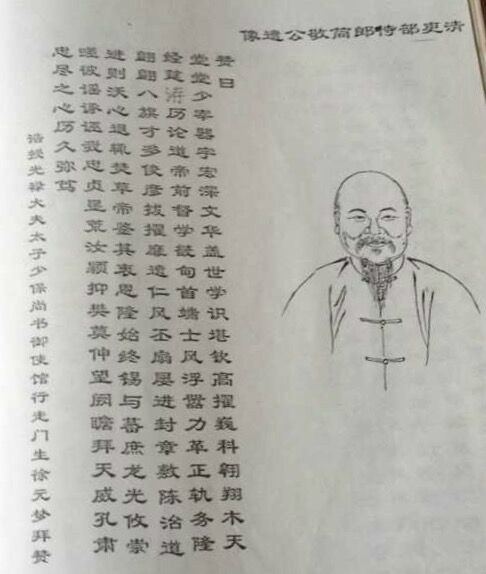 清吏部侍郎简敬公遗像
赞曰
堂堂少宰器宇宏深文华盖世学识堪钦高擢巍科翱翔木天
经筵洊历论道帝前督学畿甸首端士风浮嚣力革正轨务隆
翩翩八旗才多俊彦拔擢靡遗仁风丕扇屡进封章敷陈治道
进则沃心退辄焚草帝鉴其衷恩隆始终锡与蕃庶龙光攸崇
嗟彼谣诼诬我忠贞垦荒汝颍抑樊莫伸望阙瞻拜天威孔肃
忠尽之心历久弥笃
诰授光禄大夫太子少保尚书御使馆行走门生徐元梦拜赞